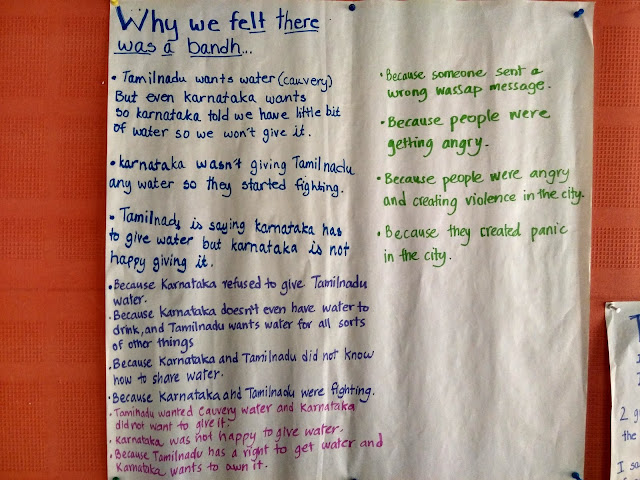 Why we felt there
was a bandh...
• Tamilnadu wants water (cauvery)
But even Karnataka wants
so karnataka told we have little bit
of water so we won't give it.
• karnataka wasn't giving Tamilnadu
any water so they started fighting.
• Tamilnadu is saying karnataka has
to give water but karnataka is not
happy giving it.
• Because Karnataka refused to give Tamilnadu
water.
• Because Karnataka doesn't even have water to
drink, and Tamilnadu wants water for all sorts
of other things
• Because Karnataka and Tamilnadu did not know
how to share water.
• Because Karnataka and Tamilnadu were fighting.
• Tamilnadu wanted cauvery water and Karnataka
did not want to give it.
• Karnataka was not happy to give water.
• Because Tamilnadu has a right to get water and
Karnataka wants to own it.
• Because someone sent a
wrong wassap message.
• Because people were
getting angry.
• Because people were angry
and creating violence in the city.
• Because they created panic
in the city.
T
2 g
the
I sa